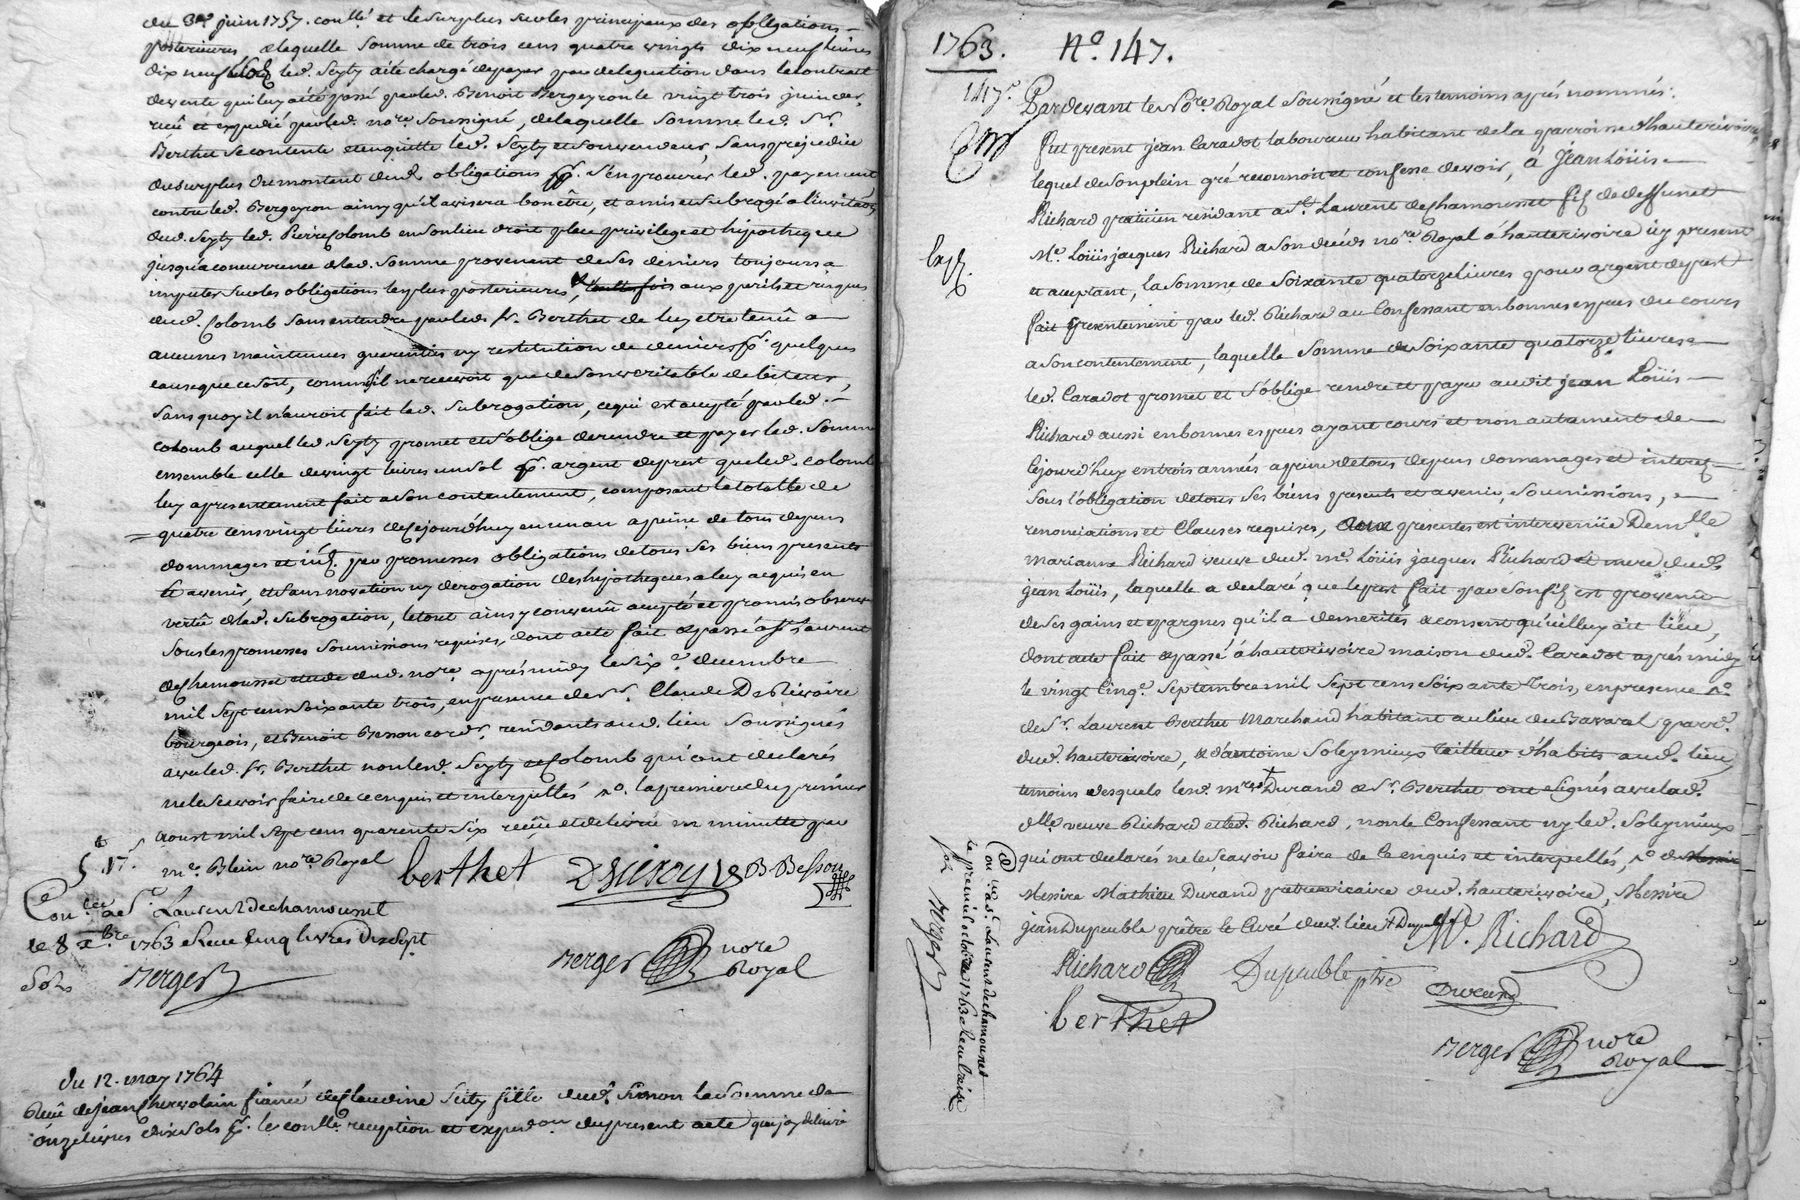 du 3e. juin 1757. conllé et le surplus sur les principaux des obligations
posterieures, de laquelle somme de trois cens quatre vingts dix neuf livres
dix neuf sols led. Seyty a été chargé de payer par delegation dans le contract
de vente qui luy a été passé par led. Benoit Bergeyron le vingt trois juin der.
receu et expedié par led. nore. soussigné, de laquelle somme led. Sr.
Berthet se contente et en quitte led. Seyty et son vendeur, sans prejudice
du surplus du montant desd. obligations pr. s'en procurer led. payement
contre led. Bergeyron ainsy qu'il avisera bon être, et a mis et subrogé
dud. Seyty led. Pierre Colomb en son lieu droit place privilege et hipotheque
jusqu'a concurrence de lad. somme provenant de ses deniers toujours a
imputer sur les obligations les plus posterieures, aux perils et risques
dud. Colomb sans entendre par led. sr. Berthet de luy etre tenû a
aucunes maintenues garenties ny restitution de deniers pr. quelques
cause que ce soit, comme il ne recevoit que de son veritable debiteur,
sans quoy il n'auroit fait lad. subrogation, ce qui est accepté par led.
Colomb auquel led. Seyty promet et s'oblige de rendre et payer lad. somme
ensemble celle de vingt livres un sol pr. argent de prest que led. Colomb
luy a presentement fait a son contentement, composant la totalle de
quatre cens vingt livres de ce jourd'huy en un an a peine de tous depens
dommages et int. par promesses obligations de tous ses biens presents
et avenir, et sans novation ny derogation des hipotheques a luy acquis en
vertû de lad. subrogation, le tout ainsy convenû accepté et promis observer
sous les promesses soumissions requises, dont acte fait et passé a St. Laurent
de Chamousset etude dud. nore. aprés midy le six e. decembre
mil sept cens soixante trois, en presence de sr. Claude Deriévoire
bourgeois, et Benoit Besson cordr. residants aud. lieu soussignés
avec led. sr. Berthet non lesd. Seyty et Colomb qui ont declarés
ne le scavoir faire de ce enquis et interpellés, la premiere du premier
aoust mil sept cens quarente six receue et delivrée en minutte par
me. Blein nore Royal
berthet Deriévoire B. Besson
5# 17s
Conllé a St. Laurent de chamousset
le 8 xbre 1763 Receu cinq livres dix sept
sols Berger
Berger nore Royal
du 12. may 1764
Receu de jean fiancé de Claudine Seity fille dud. Simon la somme de
onze livres dix sols pr. le conlle. reception et expedon. du present acte que j'ay delivré
1763. No. 147.
147e.
Pardevant le Nore. Royal soussigné et les temoins aprés nommés.
fut present jean Caradot laboureur habitant de la parroisse d'hauterivoire,
lequel de son plein gré reconnoit et confesse devoir, à Jean Loüis
Richard praticien residant a St. Laurent de Chamousset fils de deffunct
Me. Loüis jacques Richard a son decéds nore. Royal a hauterivoire icy present
Exp.
et acceptant, la somme de soixante quatorze livres pour argent de prest
fait presentement par led. Richard au Confessant en bonnes especes du cours
a son contentement, laquelle somme de soixante quatorze livres
led. Caradot promet et s'oblige rendre et payer audit jean Loüis
Richard aussi en bonnes especes ayant cours et non autrement de
ce jourd'huy en trois années a peine de tous depens dommages et interests
sous l'obligation de tous ses biens presents et avenir, soumissions,
renonciations et Clauses requises, aux presentes est intervenüe Demlle
marianne Richard veuve dud. me. Loüis jacques Richard et mere dud.
jean Loüis, laquelle a declaré que le prest fait par son fils est provenu
de ses gains et epargnes qu'il a demerités et consent qu'il luy ait lieu,
dont acte fait et passé à hauterivoire maison dud. Caradot aprés midy
le vingt cinqe. septembre mil sept cens soixante trois, en presence
de sr. Laurent Berthet marchand habitant au lieu du Bavaral parre.
dud. hauterivoire, et d'antoine Soleymieux tailleur d'habits aud. lieu
temoins desquels lesd. mres Durand et sr. Berthet ont signés avec lad.
dlle veuve Richard et led. Richard, non le Confessant ny led. Soleymieux
qui ont declarés ne le scavoir faire de ce enquis et interpellés,
Messire Mathieu Durand vicaire dud. hauterivoire, Messire
jean Dupeuble prêtre le Curé dud. lieu
M. Richard
Richard Dupeuble ptre Durand
berthet
Berger nore Royal
Con. a St. Laurent de chamousset
le premier octobre 1763 Receu
sols Berger